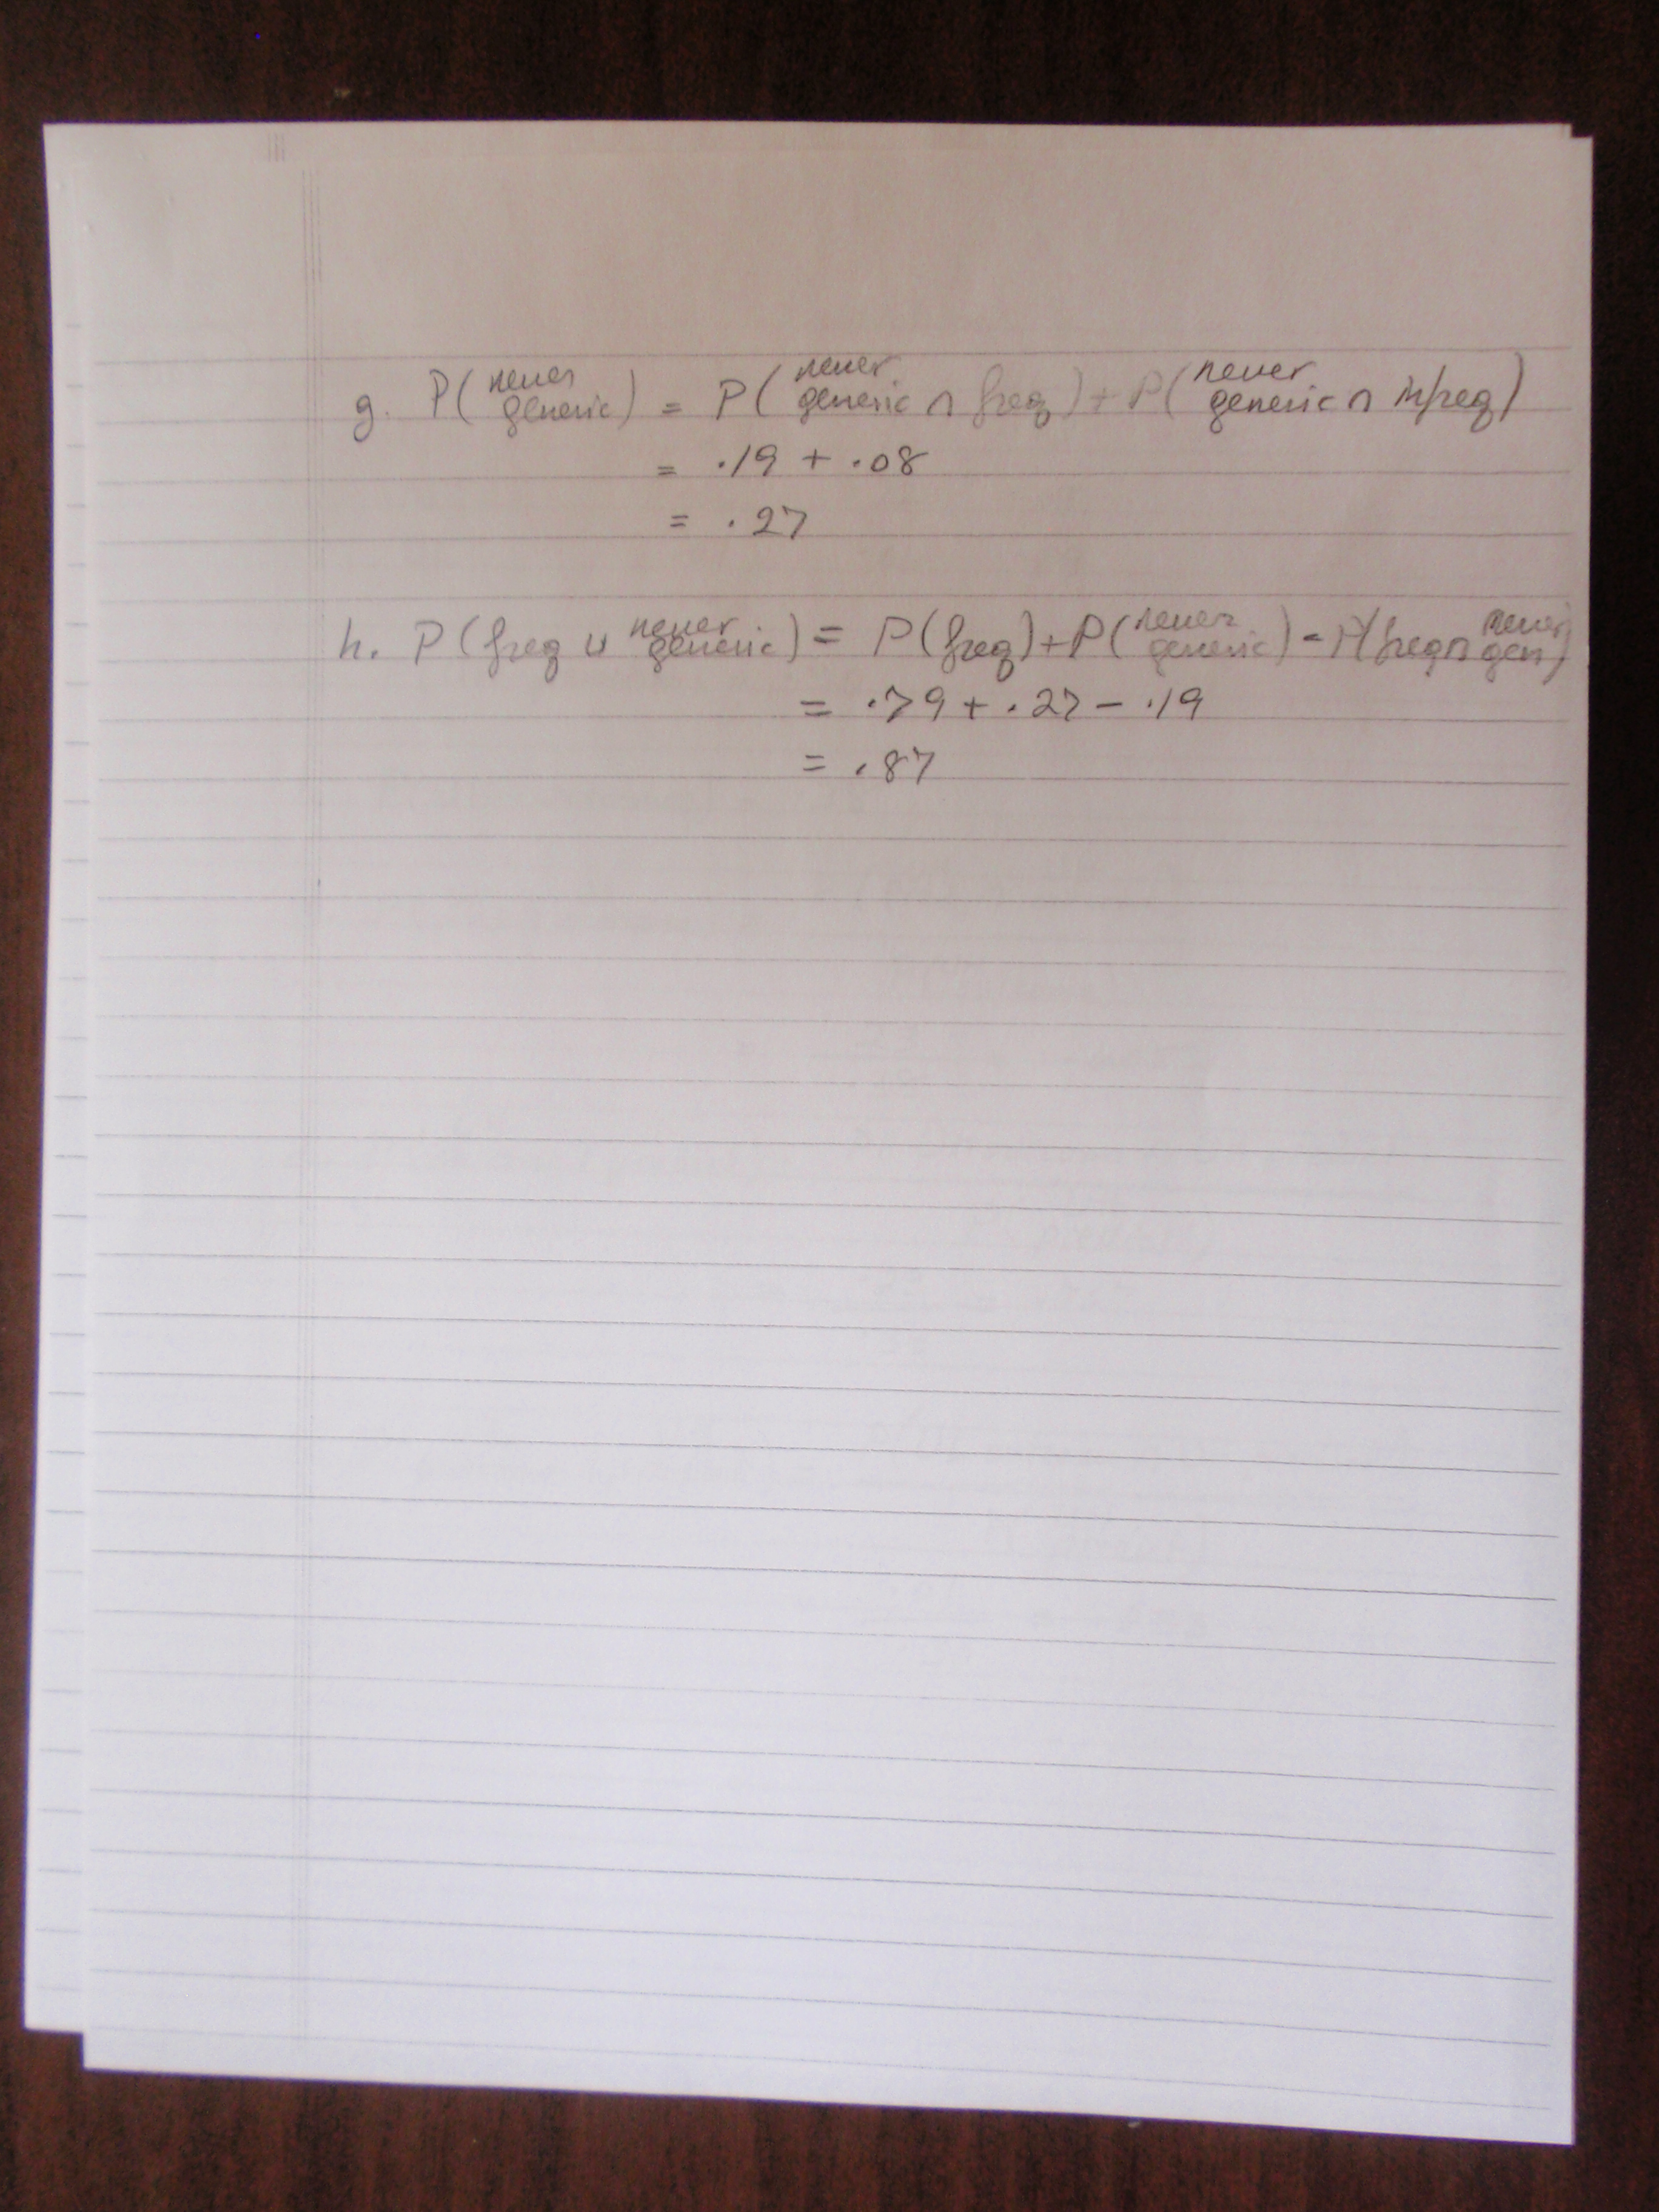 g. P(never generic) = P(never generic ∩ freq) + P(never generic ∩ infreq)
= .19 + .08
= .27
h. P(freq ∪ never generic) = P(freq) + P(never generic) - P(freq ∩ never gen)
= .79 + .27 - .19
= .87